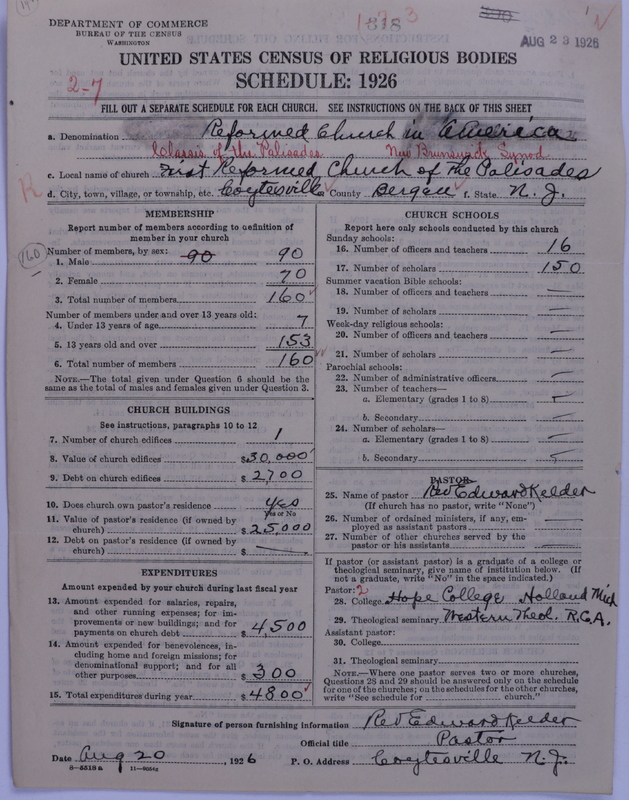 DEPARTMENT OF COMMERCE
BUREAU OF THE CENSUS
WASHINGTON
AUG 23 1926
UNITED STATES CENSUS OF RELIGIOUS BODIES
SCHEDULE: 1926
2-7
FILL OUT A SEPARATE SCHEDULE FOR EACH CHURCH. SEE INSTRUCTIONS ON THE BACK OF THIS SHEET
a. Denomination Reformed Church in America
Classis of the Palisades New Brunswick Synod
c. Local name of church First Reformed Church of the Palisades
R
d. City, town, village, or township, etc. Coytesville County Bergen f. State N. J.
MEMBERSHIP
Report number of members according to definition of
member in your church
160
Number of members, by sex: 90
1. Male 90
2. Female 70
3. Total number of members 160
Number of members under and over 13 years old:
4. Under 13 years of age 7
5. 13 years old and over 153
6. Total number of members 160
NOTE.—The total given under Question 6 should be the
same as the total of males and females given under Question 3.
CHURCH BUILDINGS
See instructions, paragraphs 10 to 12
7. Number of church edifices 1
8. Value of church edifices $30,000
9. Debt on church edifices $2700
10. Does church own pastor's residence yes
Yes or No
11. Value of pastor's residence (if owned by
church) $25,000
12. Debt on pastor's residence (if owned by
church) $ —
EXPENDITURES
Amount expended by your church during last fiscal year
13. Amount expended for salaries, repairs,
and other running expenses; for im-
provements or new buildings; and for
payments on church debt $4500
14. Amount expended for benevolences, in-
cluding home and foreign missions; for
denominational support; and for all
other purposes $300
15. Total expenditures during year $4800
CHURCH SCHOOLS
Report here only schools conducted by this church
Sunday schools:
16. Number of officers and teachers 16
17. Number of scholars 150
Summer vacation Bible schools:
18. Number of officers and teachers —
19. Number of scholars —
Week-day religious schools:
20. Number of officers and teachers —
21. Number of scholars —
Parochial schools:
22. Number of administrative officers —
23. Number of teachers—
a. Elementary (grades 1 to 8) —
b. Secondary —
24. Number of scholars—
a. Elementary (grades 1 to 8) —
b. Secondary —
PASTOR
25. Name of pastor Rev Edward Kelder
(If church has no pastor, write "None")
26. Number of ordained ministers, if any, em-
ployed as assistant pastors —
27. Number of other churches served by the
pastor or his assistants —
If pastor (or assistant pastor) is a graduate of a college or
theological seminary, give name of institution below. (If
not a graduate, write "No" in the space indicated.)
Pastor: 2
28. College Hope College Holland Mich
29. Theological seminary Western Theol. R.C.A.
Assistant pastor:
30. College
31. Theological seminary
NOTE.—Where one pastor serves two or more churches,
Questions 28 and 29 should be answered only on the schedule
for one of the churches; on the schedules for the other churches,
write "See schedule for church."
Signature of person furnishing information Rev Edward Kelder
Official title Pastor
Date Aug 20, 1926 P. O. Address Coytesville N. J.